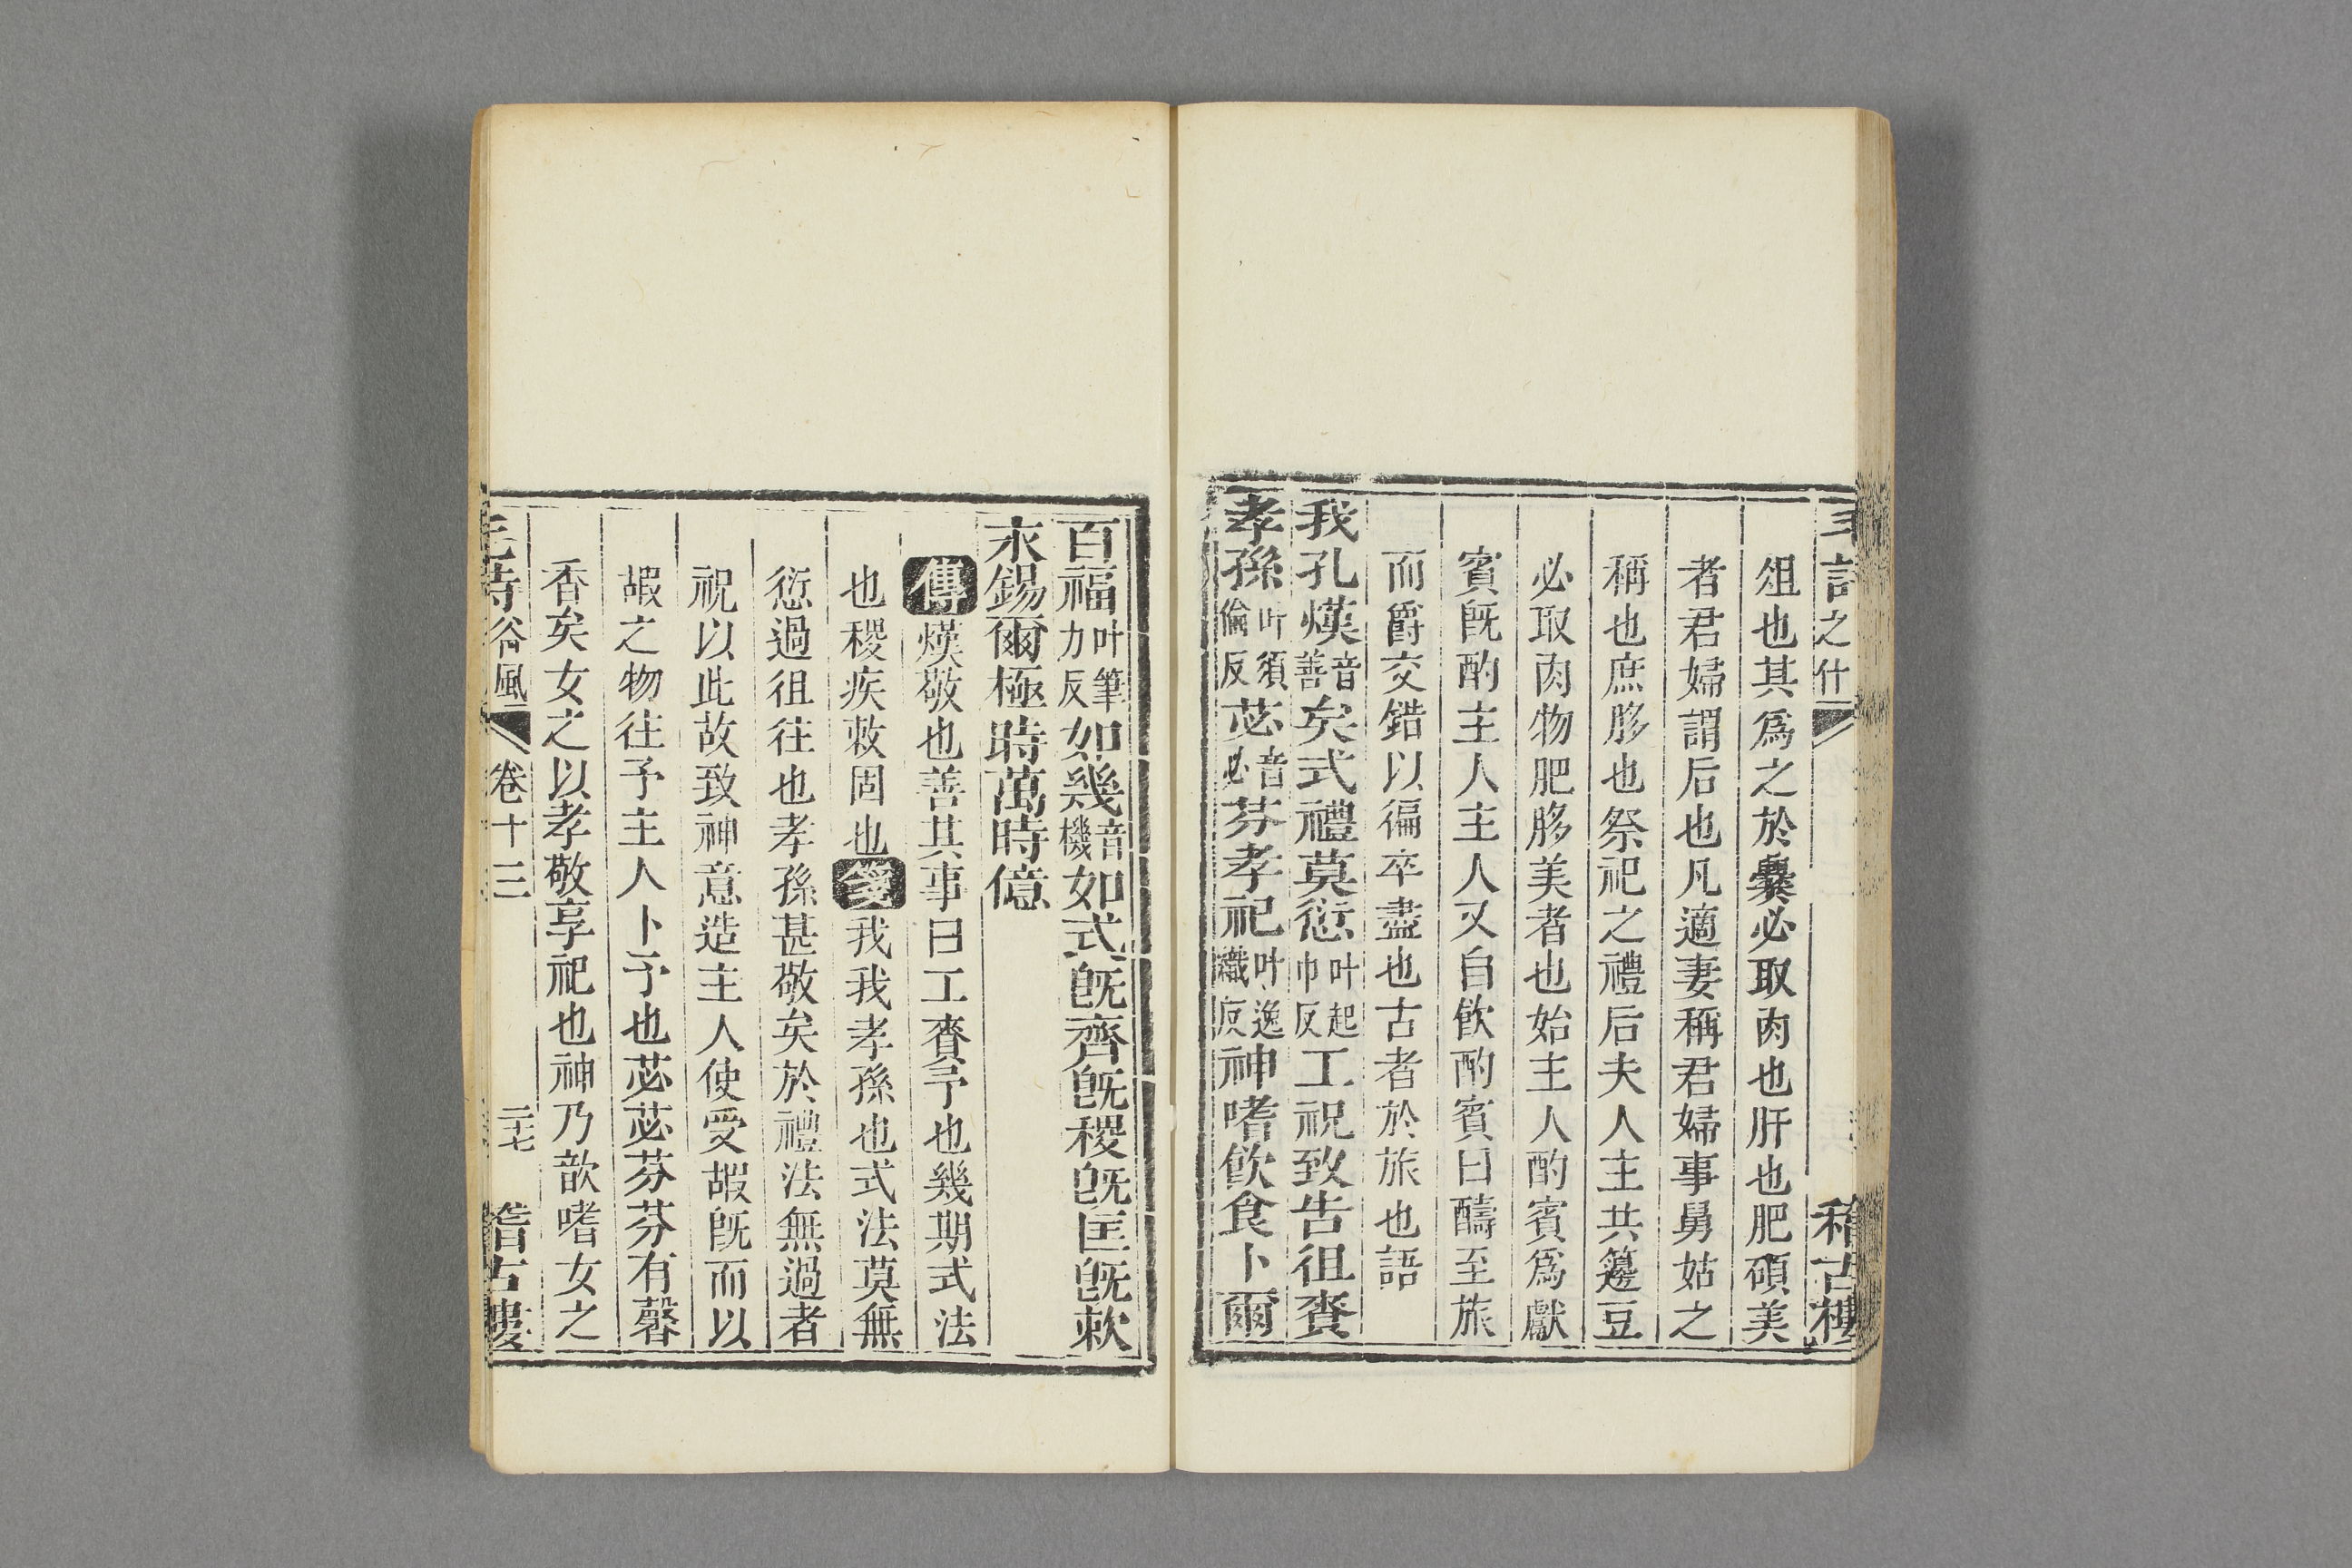 俎也其爲之於爨必取肉也肝也肥碩美
者君婦謂后也凡適妻稱君婦事舅姑之
稱也庶䏧也祭祀之禮后夫人主共籩豆
必取肉物肥䏧美者也始主人酌賓爲獻
賓旣酌主人主人又自飮酌賓曰醻至旅
而爵交錯以徧卒盡也古者於旅也語
我孔熯音善矣式禮莫愆叶起巾反工祝致告徂賚
孝孫叶須倫反苾音必芬孝祀叶逸織反神嗜飮食卜爾
之什
稽古樓
百福叶筆力反如幾音機如式旣齊旣稷旣匡旣敕
永錫爾極時萬時億
傳熯敬也善其事曰工賚予也幾期式法
也稷疾敕固也箋我我孝孫也式法莫無
愆過徂往也孝孫甚敬矣於禮法無過者
祝以此故致神意造主人使受嘏旣而以
嘏之物往予主人卜予也苾苾芬芬有馨
香矣女之以孝敬享祀也神乃歆嗜女之
毛詩谷風 卷十三 二十七 稽古樓